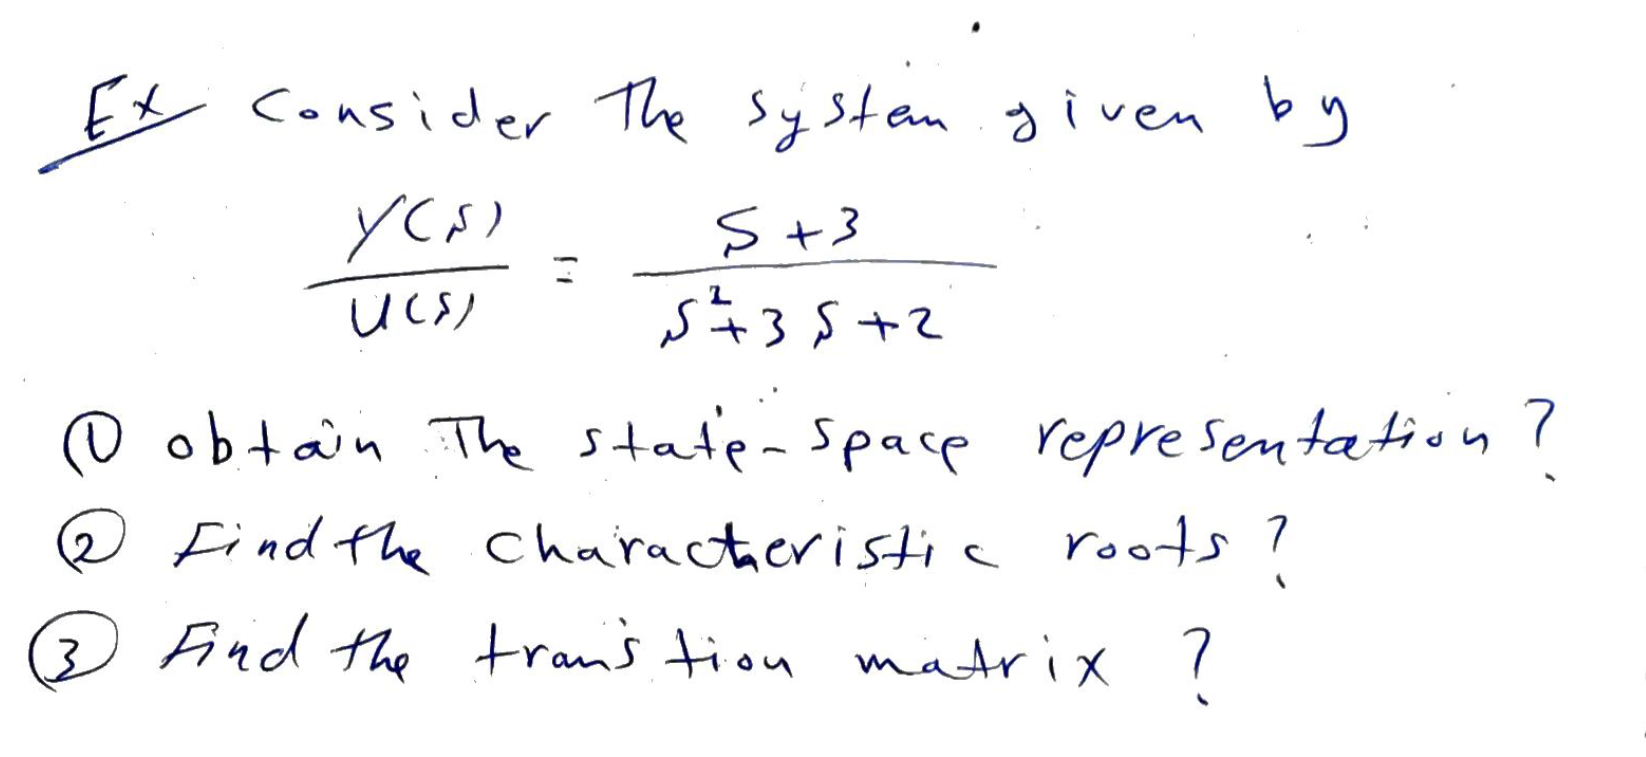 Ex Consider The system given by
Y(s)/U(s) = S+3/S²+3S+2
① obtain The state-space representation?
② Find the characteristic roots?
③ Find the transtion matrix?